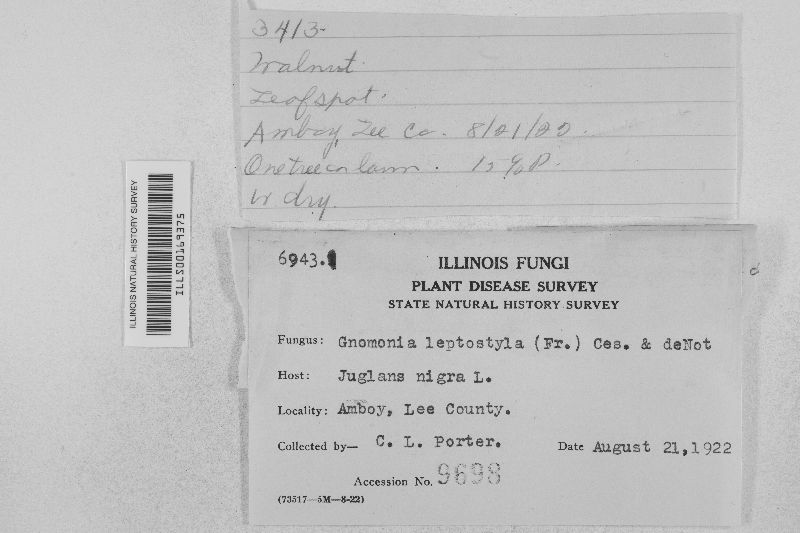 3413
Walnut
Leaf spot.
Amboy, Lee Co. 8/21/22.
One tree on lawn. 15%P.
W dry.
ILLINOIS NATURAL HISTORY SURVEY
ILLS00169375
6943.
ILLINOIS FUNGI
PLANT DISEASE SURVEY
STATE NATURAL HISTORY SURVEY
Fungus: Gnomonia leptostyla (Fr.) Ces. & deNot
Host: Juglans nigra L.
Locality: Amboy, Lee County.
Collected by— C. L. Porter. Date August 21,1922
Accession No. 9698
(73517—5M—8-22)